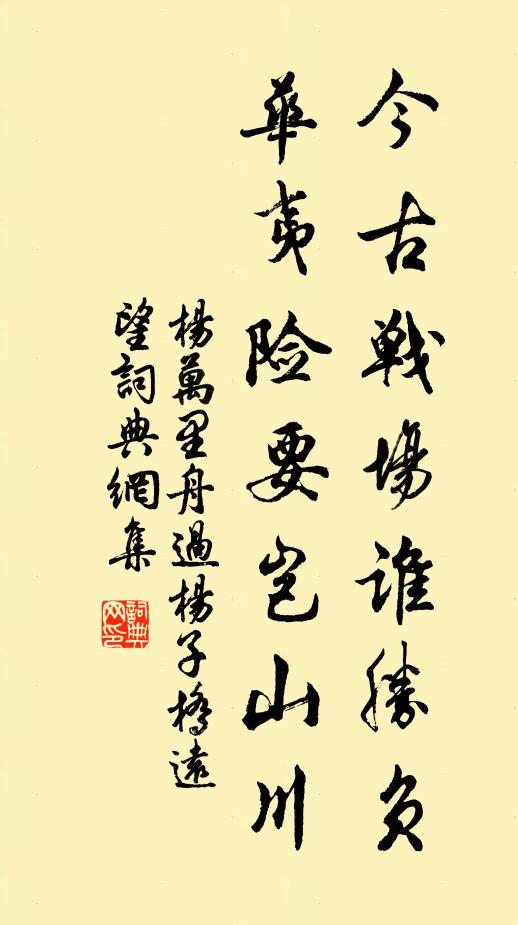 今古戰場誰勝負
華夷險要豈山川
楊萬里舟過楊子橋遠
望詞典網集
詞典
网印